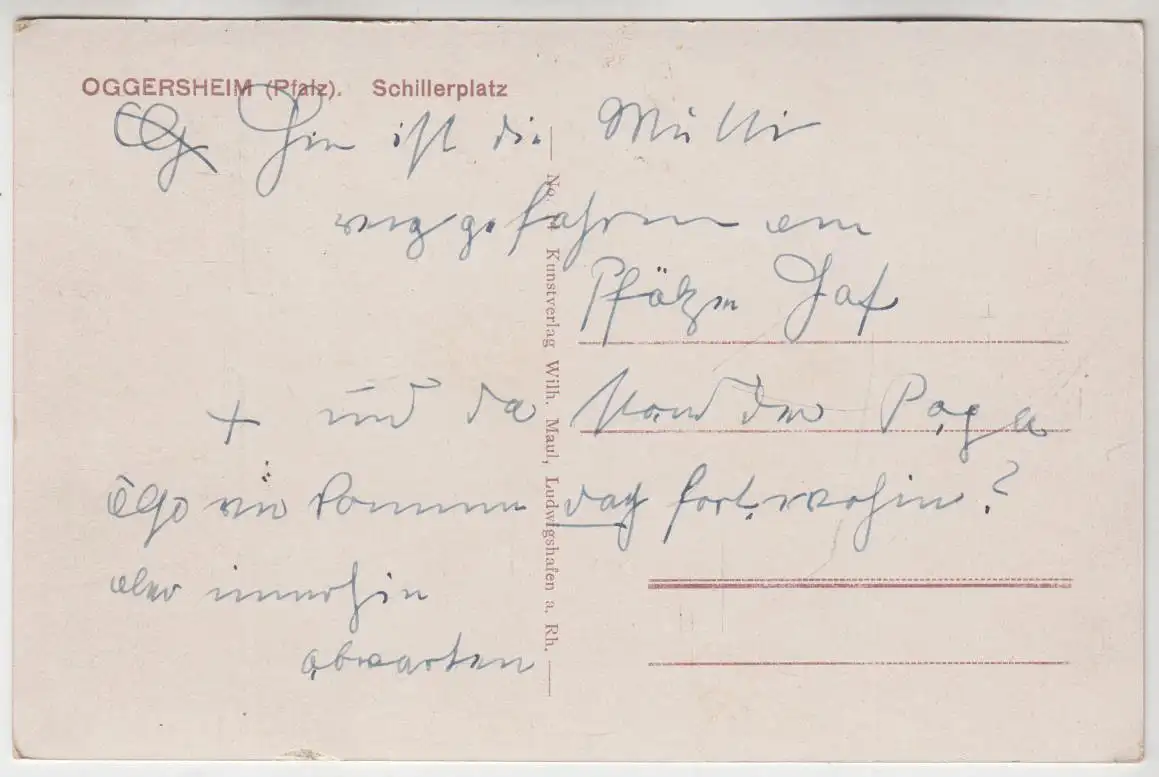 OGGERSHEIM (Pfalz). Schillerplatz
Hier ist die Mutti
weggefahren am
Pfälzer Hof
+ und da stand der Papa
Also wir kommen doch fort, wohin?
aber immerhin
abwarten
Kunstverlag Wilh. Maul, Ludwigshafen a. Rh.